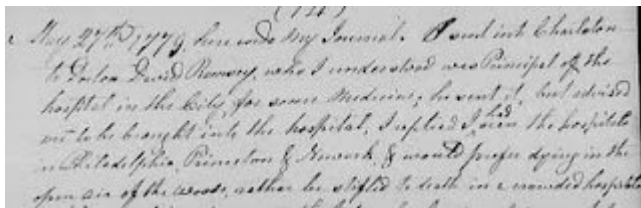 (121)
May 27th 1779, here ends My Journal. I sent into Charleton
to Doctor David Ramsey, who I understood was Principal of the
hospital in the City, for some Medicine; he sent it, but advised
me to be brought into the hospital, I replied I had seen the hospitals
in Philadelphia, Princeton & Newark, & would prefer dying in the
open air of the woods, rather be stifled to death in a crowded hospital